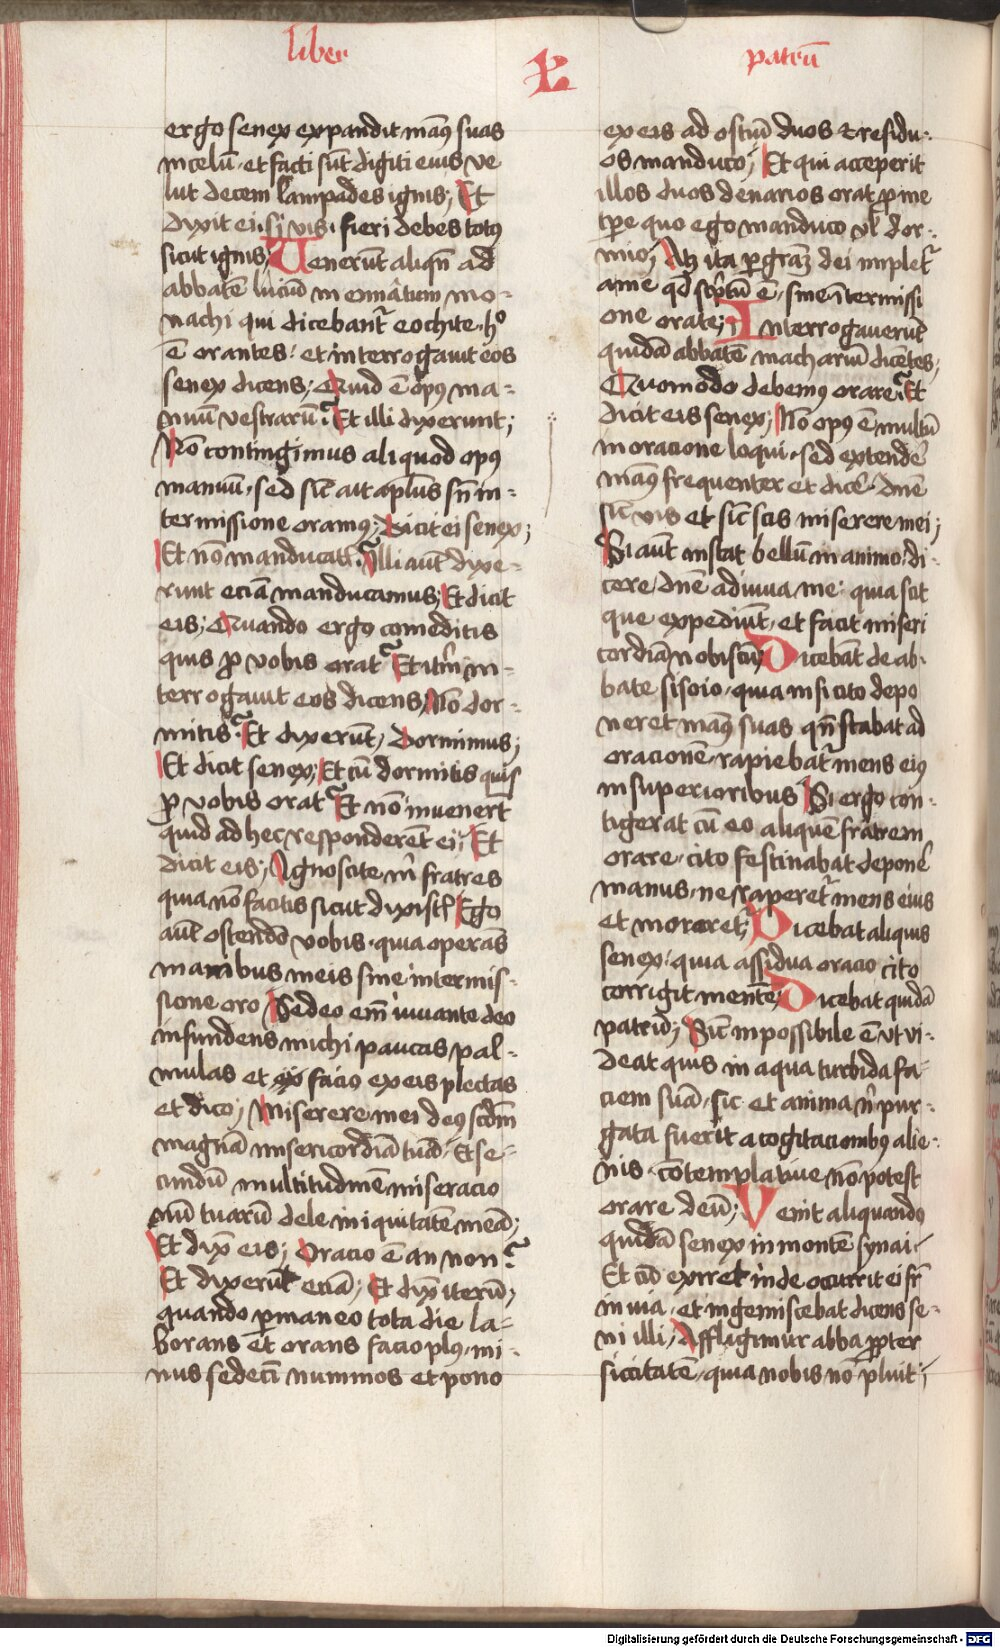 liber
patrū
ergo senex expandit manꝯ suas
in celū · et facti sūt digiti eius ve
lut decem lampades ignis; Et
dixit ei · si vis · fieri debes totꝯ
sicut ignis; Uenerūt aliqn̄ ad
abbatē luciū in ennatum mo-
nachi qui dicebant᷑ eochite · hᵒ
ē orantes · et interrogauit eos
senex dicens; Quid ē opꝯ ma-
nuū vestrarū? Et illi dixerunt;
Nō contingimus aliquod opꝯ
manuū · sed sic̄ ait apl̄us sn̄ in-
termissione oramꝯ; Dicit ei senex;
Et nō manducatis? Illi aut̄ dixe-
runt eciā manducamus; Et dicit
eis; Quando ergo comeditis
quis ꝓ vobis orat? Et itm̄ in-
terrogauit eos dicens; Nō dor-
mitis? Et dixerūt; Dormimus;
Et dicit senex; Et cū dormitis quis
ꝓ vobis orat? Et nō inuenert
quid ad hec responderēt ei; Et
dicit eis; Ignoscite m̄ fratres
quia nō facitis sicut dixistꝭ Ego
aut̄ ostendō vobis · quia operās
manibus meis sine intermis-
sione oro Sedeo em̄ iuuante deo
infundens michi paucas pal-
mulas et facio ex eis plectas
et dico; Miserere mei deꝯ scd̄m
magnā misericordiā tuā · Et se-
cundū multitudinē miseracio
nū tuarū dele iniquitatē meā;
Et dix̄ eis; Oracio ē an non?
Et dixerūt eciā; Et dix̄ iterū;
quando ꝑmaneo tota die la-
borans et orans facio plꝯ mi-
nus sedecī nummos et pono
ex eis ad ostiū duos et residu-
os manduco; Et qui acceperit
illos duos denarios orat ꝓ me
tꝑe quo ego manduco vl̄ dor-
mio; Atqꝫ ita ꝑ gr̄aꝫ dei implet᷑
a me qd̄ scptū ē · sine ītermissi
one orate; Interrogauerūt
quidā abbatē machariū dicētes;
Quomodo debemꝯ orare? Et
dicit eis senex; Nō opꝯ ē multū
in oracione loqui · sed extendē
manꝯ frequenter et dicē · dn̄e
sic̄ vis et sic̄ scis miserere mei;
Si aut̄ instat bellū in animo · di-
cere · dn̄e adiuua me · quia scit
que expediūt · et facit miseri
cordiā nobiscū; Dicebāt de ab-
bate sisoio · quia nisi cito depo
neret manꝯ suas qn̄ stabat ad
oracionē · rapiebat᷑ mens eiꝯ
in superioribus Si ergo con-
tigerat cū eo aliquē fratrem
orare · cito festinabat deponē
manus · ne raperet᷑ mens eius
et moraret᷑; Dicebat aliquis
senex · quia assidua oracio cito
corrigit mentē; Dicebat quidā
patrū; Sic̄ inpossibile ē vt vi-
deat quis in aqua turbida fa-
ciem suā · sic et anima n̄ pur-
gata fuerit a cogitacionibꝯ alie-
nis · cōtemplatiue nō potest
orare deū; Venit aliquando
quidā senex in montē synai ·
Et cū exiret inde occurrit ei fr̄
in via · et ingemiscebat dicens se-
ni illi; Affligimur abba ꝓpter
siccitatē · quia nobis nō pluit;
Digitalisierung gefördert durch die Deutsche Forschungsgemeinschaft - DFG